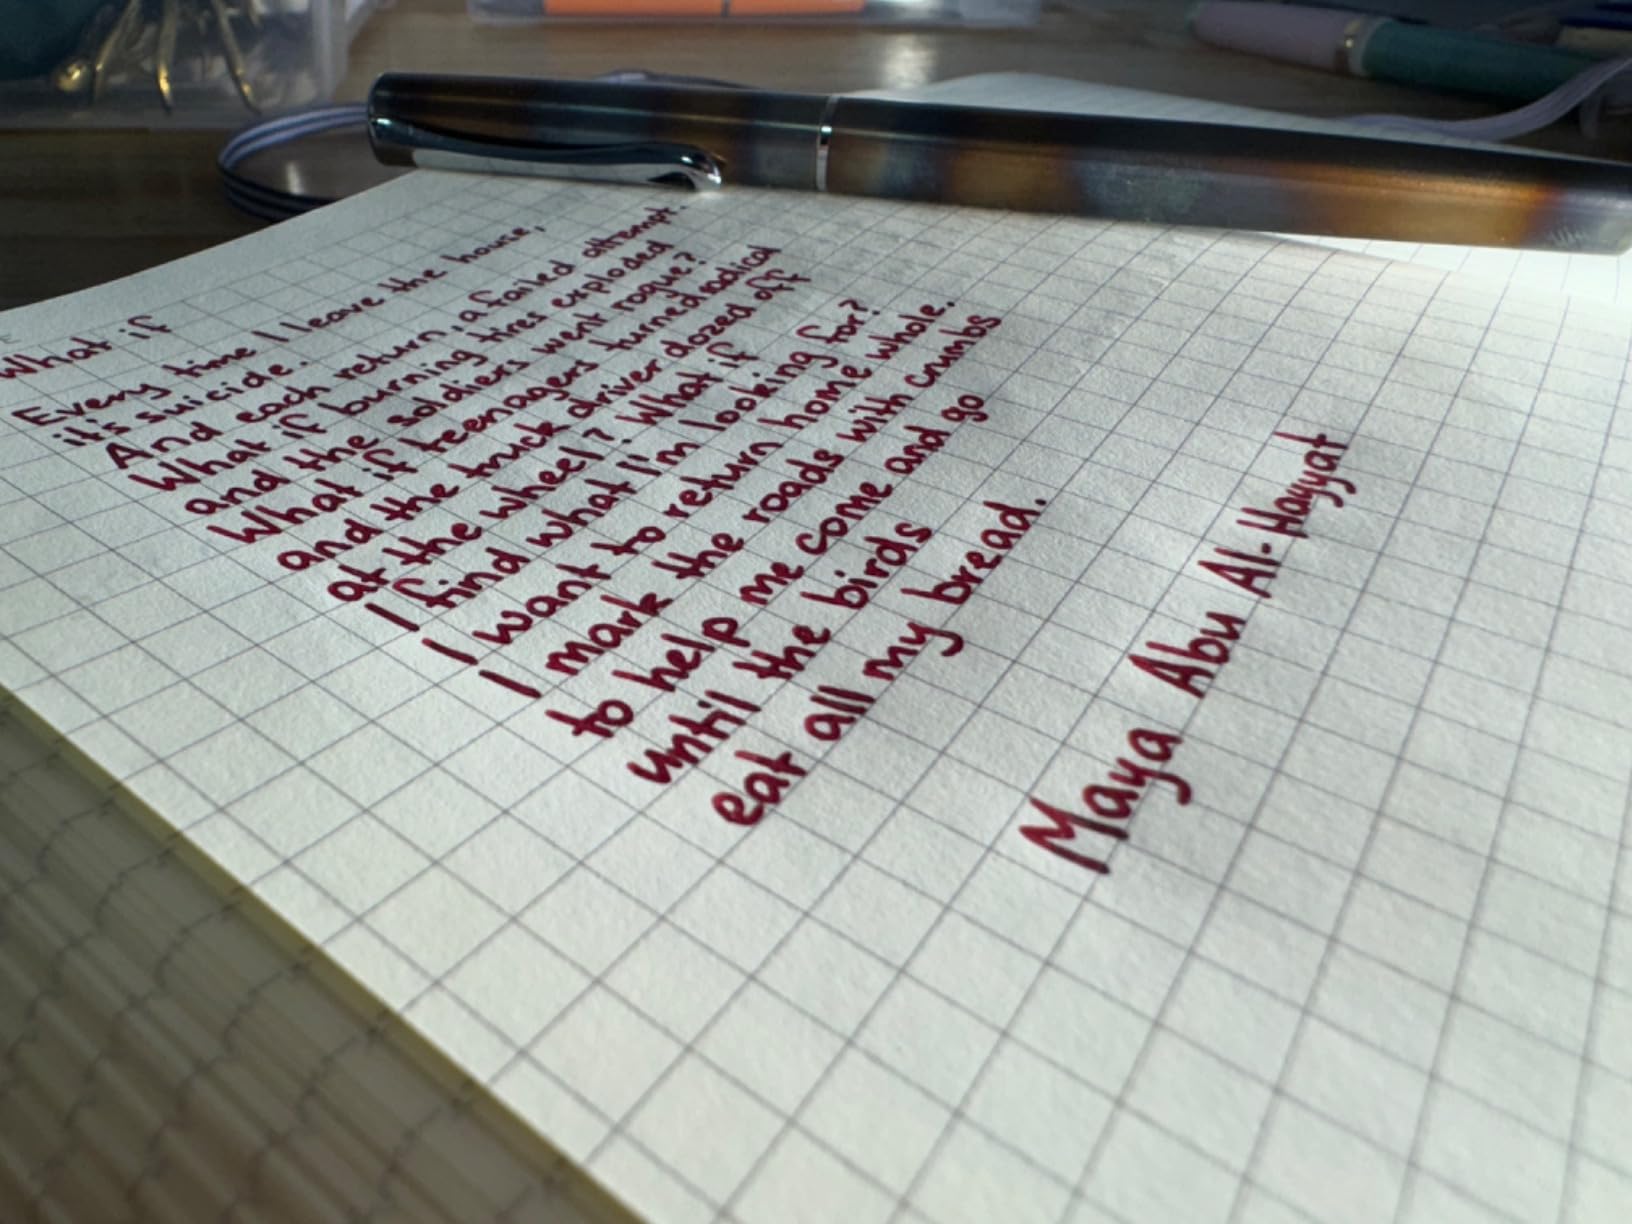 What if
Every time I leave the house,
it's suicide.
And each return, a failed attempt.
What if burning tires exploded
and the soldiers went rogue?
What if teenagers turned radical
and the truck driver dozed off
at the wheel? What if
I find what I'm looking for?
I want to return home whole.
I mark the roads with crumbs
to help me come and go
until the birds
eat all my bread.
Maya Abu Al-Hayyat